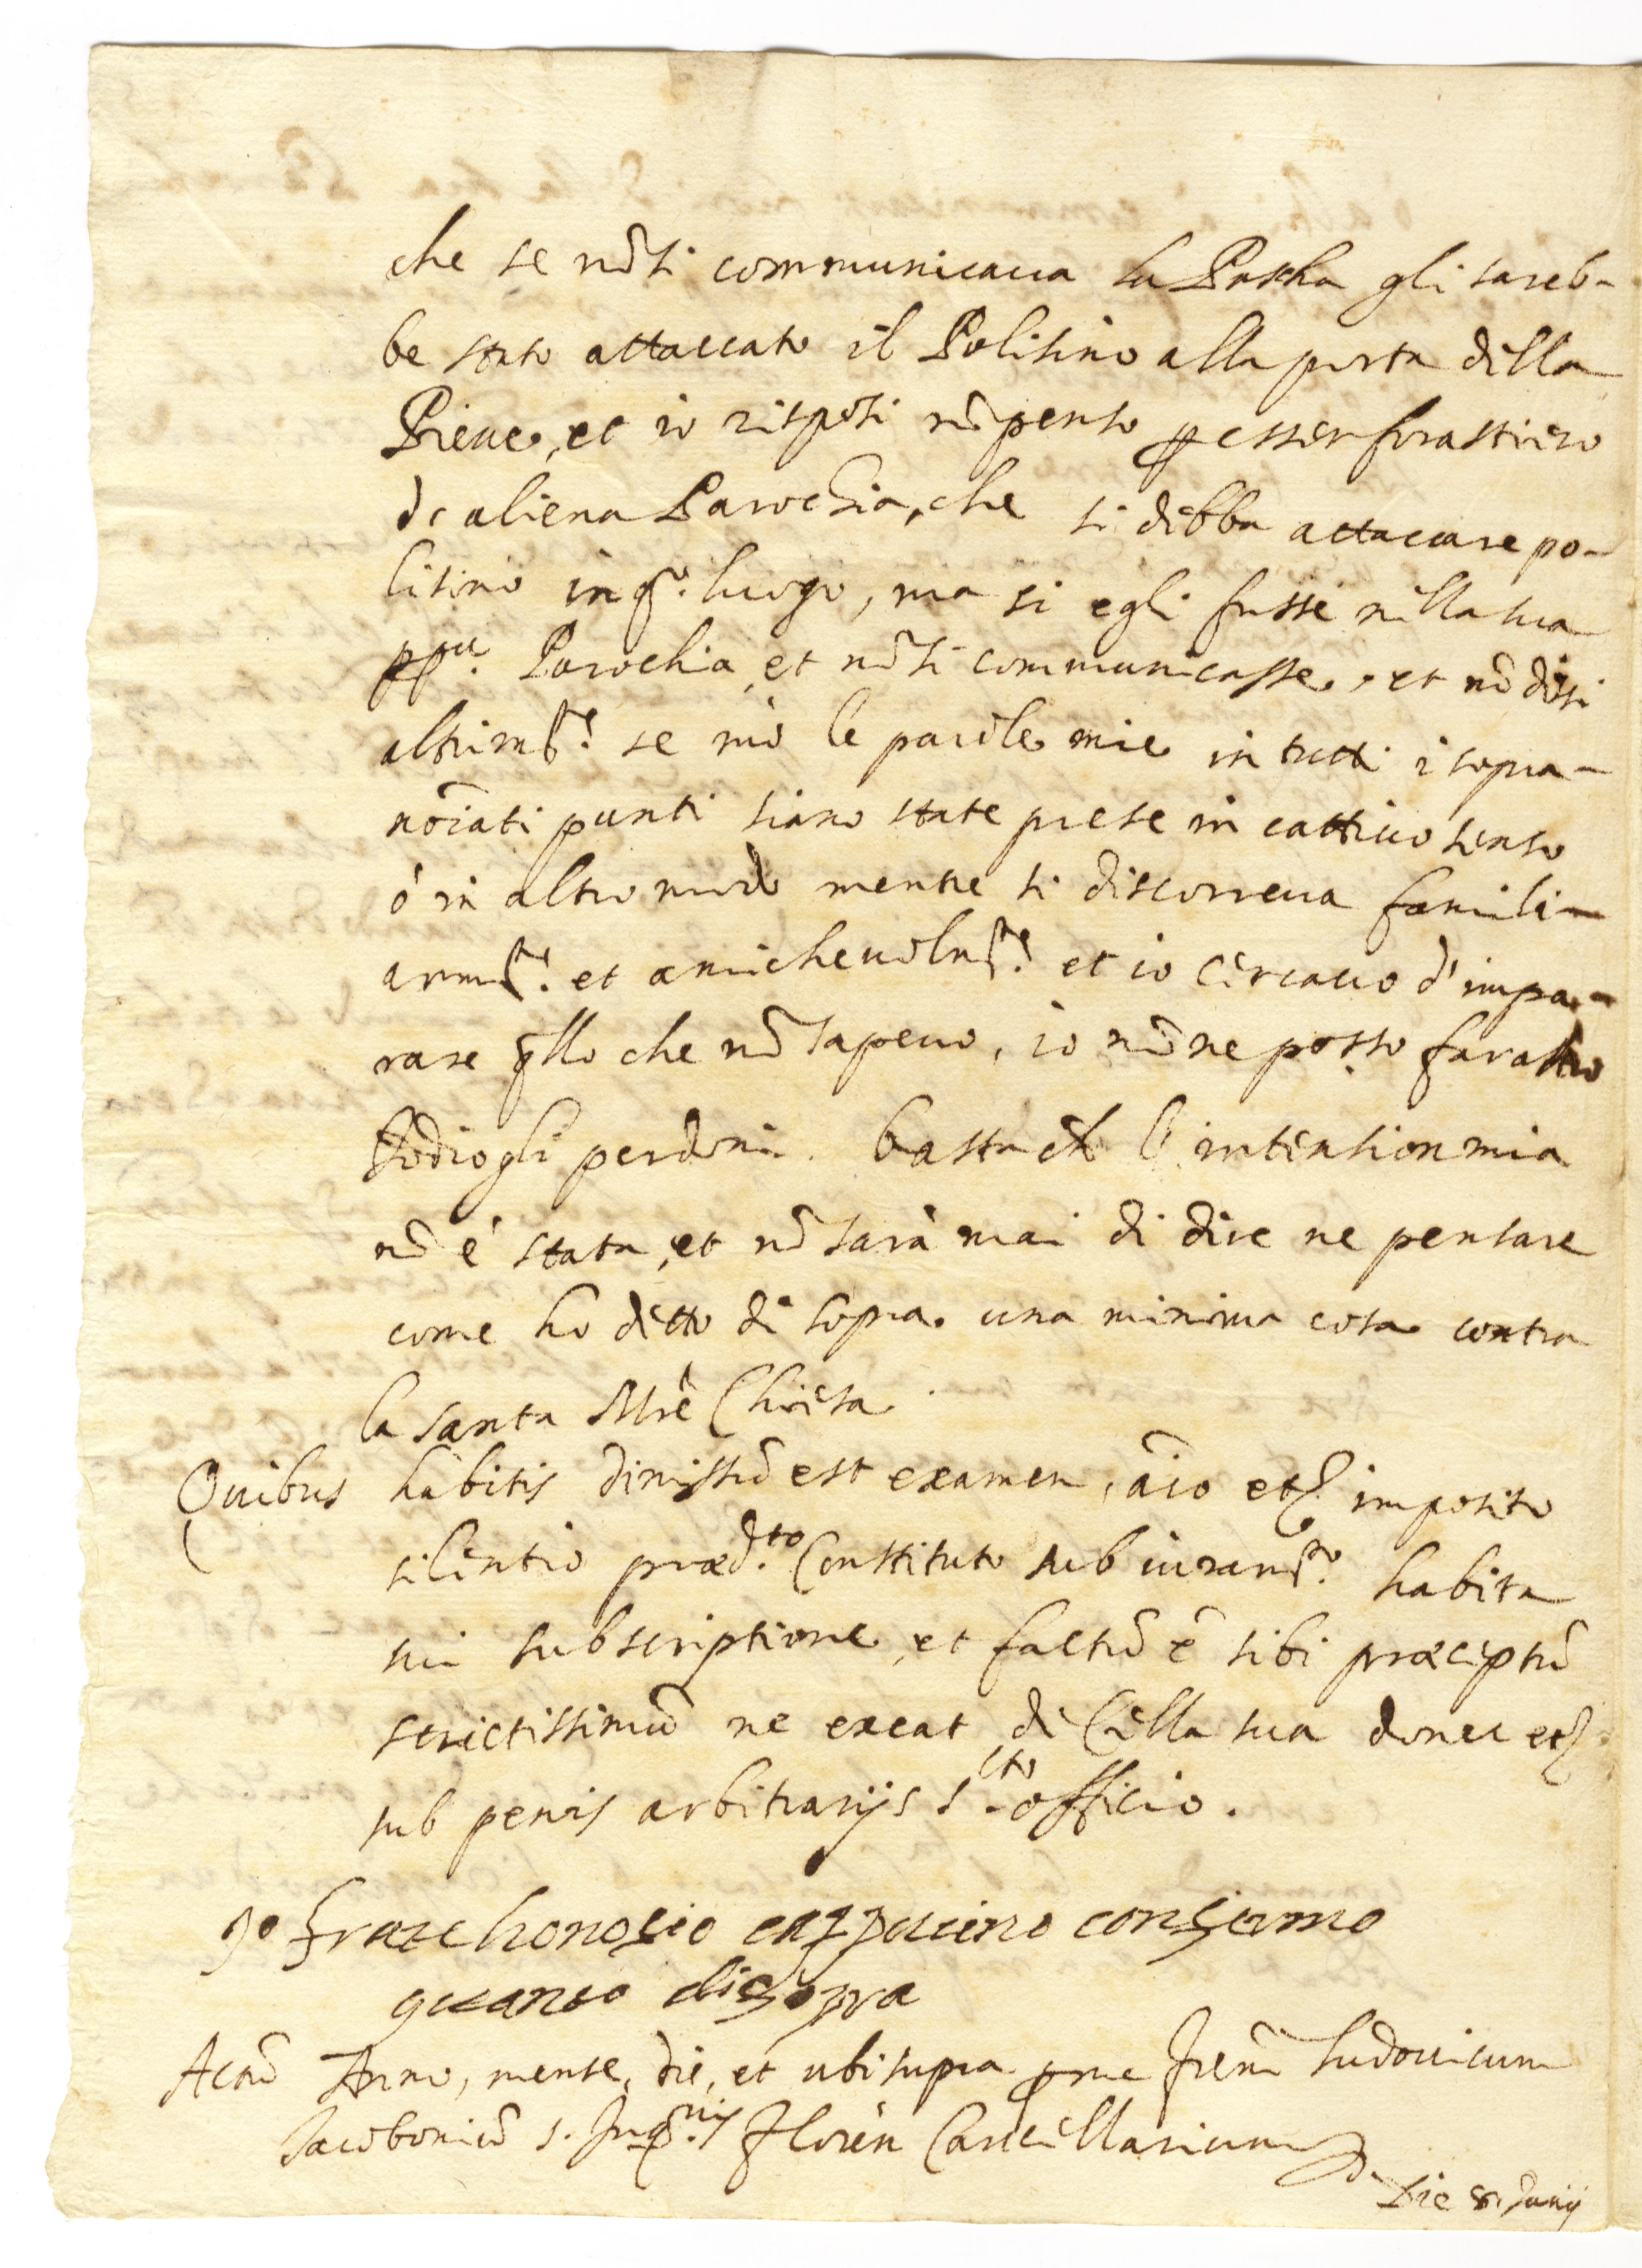 che se nõ si communicaua la Pascha gli sareb-
be stato attaccato il Polisino alla porta della
Pieue, et io risposi nõ penso ꝑ esser forastiero
de aliena Parochia, che si debba attaccare po-
lisino in q.o luogo, ma si egli fusse nella sua
ꝓp.a Parochia et nõ si communicasse, et nõ dissi
altrim.te se mò le parole mie in tutti i sopra-
nõiati punti siano state prese in cattiuo senso
ò in altro modo mentre si discorreua famili-
arm.te et amicheuolm.te et io cercauo d'impa-
rare q̃llo che nõ sapeuo, io nõ ne posso far altro
Iddio gli perdoni. basta ch l'intension mia
nõ è stata, et nõ sarà mai di dire ne pensare
come ho detto di sopra una minima cosa contra
la santa Mrẽ Chiesa
Quibus habitis dimissũ est examen, aĩo etc. imposito
silentio præd.to Constituto sub iuram.to habita
sui subscriptione, et factũ ẽ sibi præceptũ
strictissimũ ne exeat de Cella sua donec etc.
sub penis arbitrarijs s.cto officio.
Io frate honofrio cappucino confermo
quanto disopra
Actũ Anno, mense, die, et ubi supra ꝑ me frẽm Ludouicum
Jacoboniũ s. Inq.nis Floreñ Cancellarium
Die 8 Junij